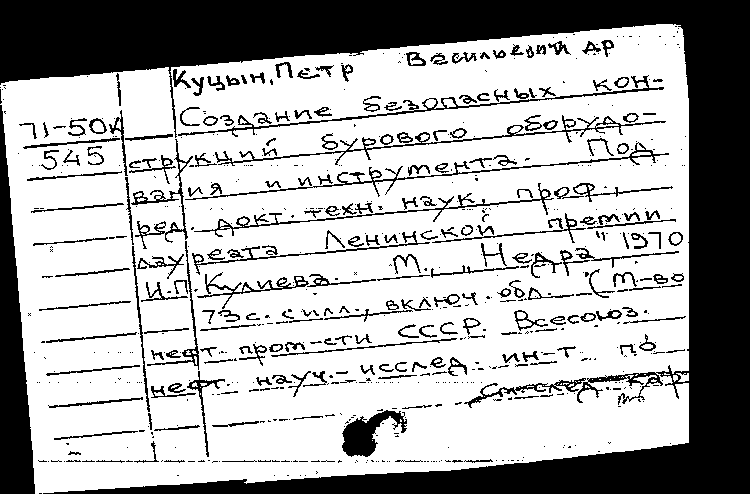 Куцын, Петр Васильевич др
71-50к Создание безопасных кон-
545 струкций бурового оборудо-
вания и инструмента. Под
ред. докт. техн. наук, проф.,
лауреата Ленинской премии
И.П. Кулиева. М., „Недра", 1970
73 с. с илл., включ. обл. (М-во
нефт. пром-сти СССР. Всесоюз.
нефт. науч.-исслед. ин-т по
см. след. кар